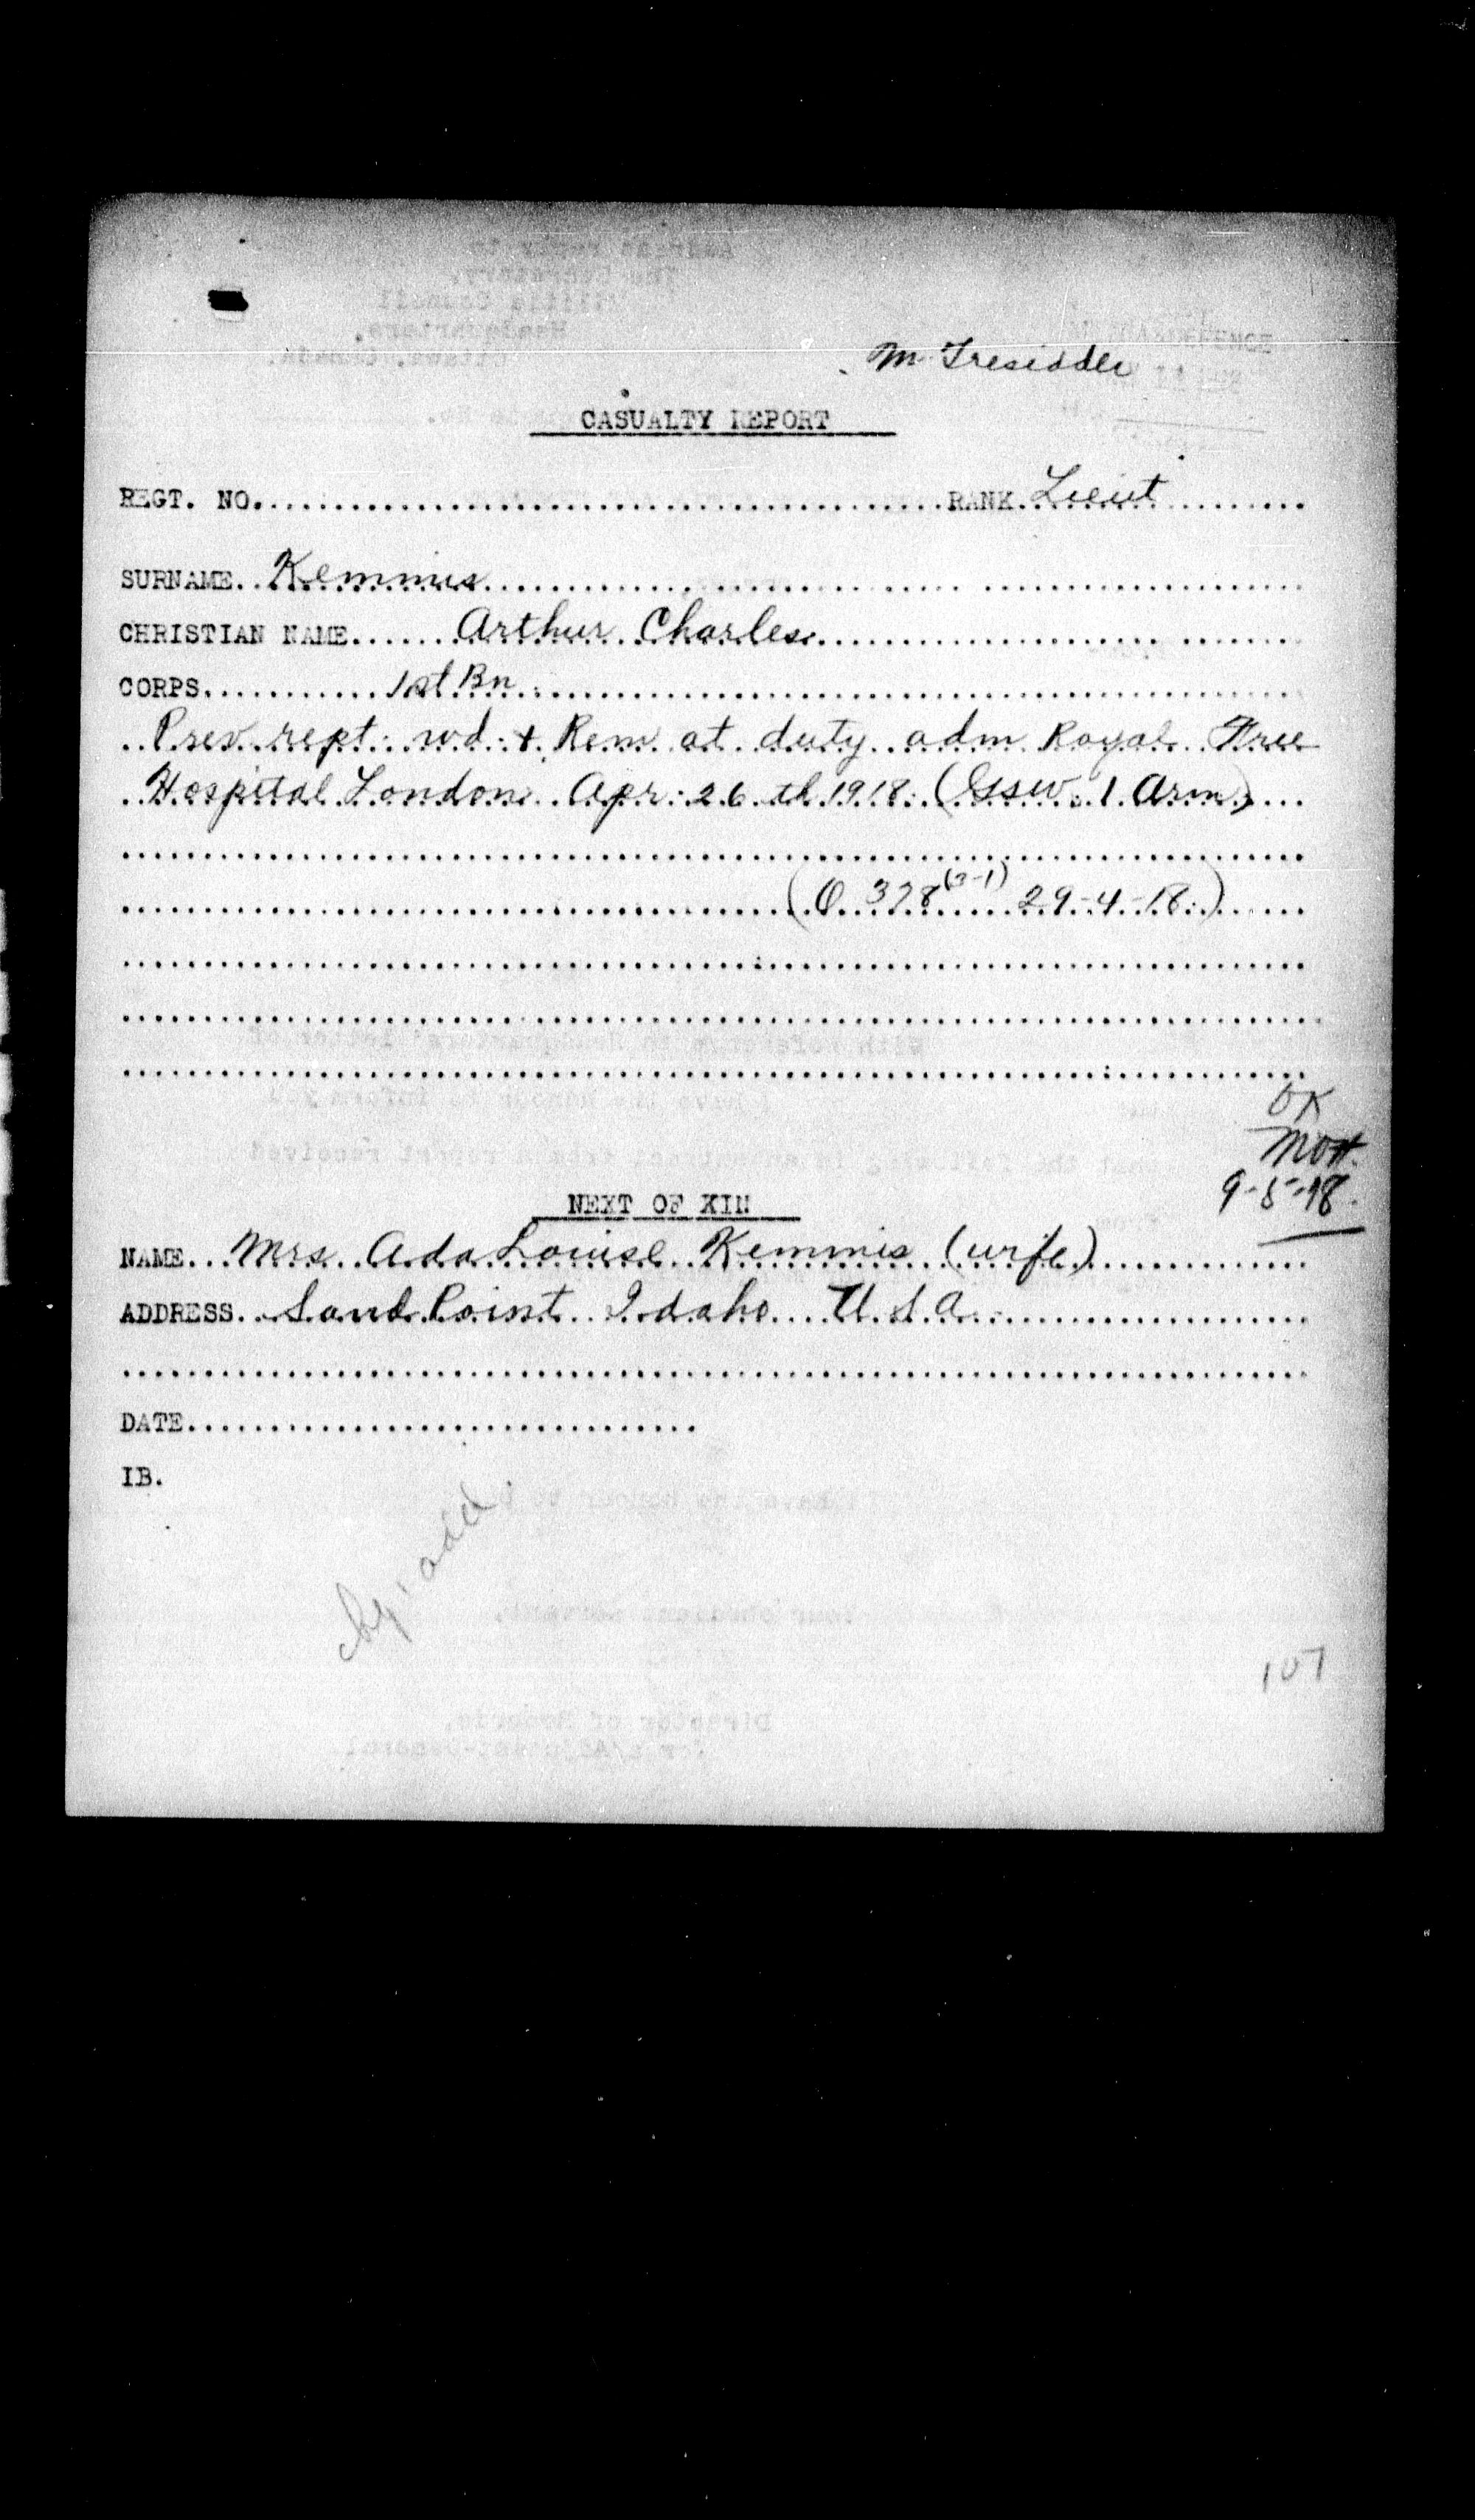 M Tresidder
CASUALTY REPORT
REGT. NO. RANK Lieut
SURNAME Kemmis
CHRISTIAN NAME Arthur Charles
CORPS 1st Bn
Prev. rept. wd. + Rem at duty adm Royal Free
Hospital London Apr. 26 th 1918. (Gsw. l Arm)
(O 378 (3-1) 29-4-18.)
OK
9-5-18.
NEXT OF KIN
NAME Mrs Ada Louise Kemmis (wife)
ADDRESS Sand Point Idaho U.S.A.
DATE
IB.
add.
107